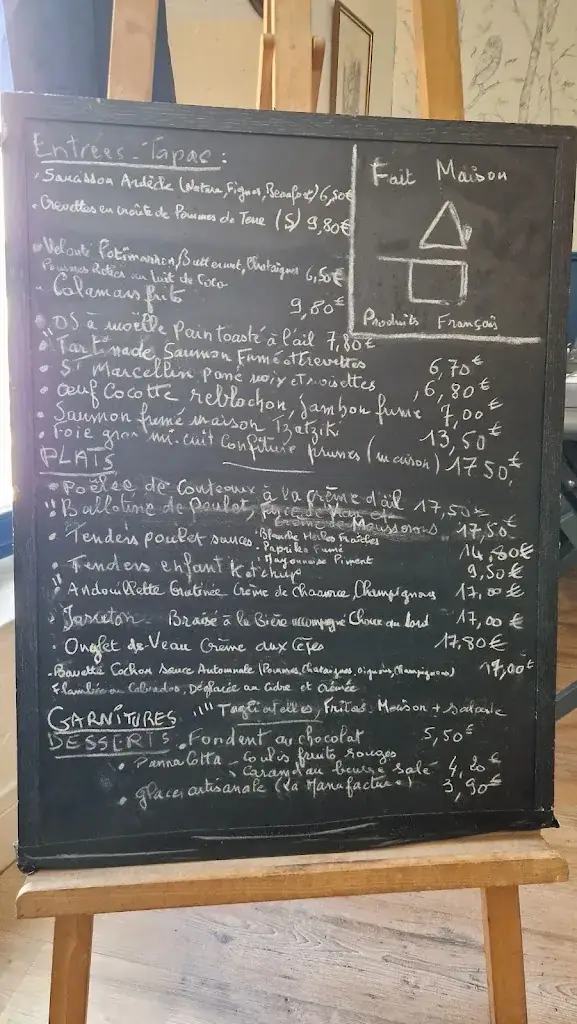 Entrées-Tapas :
Fait Maison
• Saucisson Ardèche (Nature, Figues, Beaufort) 6,50€
• Crevettes en croûte de Pommes de Terre (5) 9,80€
• Velouté Potimarron, Butternut, Chataignes
Pommes Roties au lait de Coco 6,50€
• Calamars frits 9,80€
Produits Français
• OS à moëlle Pain toasté à l'ail 7,80€
" Tartinade Saumon Fumé et crevettes 6,70€
• St Marcellin pané noix et noisettes 6,80€
• Œuf Cocotte reblochon, Jambon fumé 7,00€
• Saumon fumé maison Tzatziki 13,50€
• Foie gras mi-cuit Confiture prunes (maison) 17,50€
PLATS
• Poêlée de Couteaux à la crème d'ail 17,50€
" Ballotine de poulet, Crème de Mousserons 17,50€
• Tenders poulet sauces • Blanche Herbes Fraîches
• Paprika Fumé 14,80€
• Mayonnaise Piment
• Tenders enfant Ketchup 9,50€
" Andouillette Gratinée Crème de Chaource, Champignons 17,00€
• Jarreton Braisé à la Bière accompagné Choux au lard 17,00€
• Onglet de Veau Crème aux Cèpes 17,80€
• Bavette Cochon Sauce Automnale (Pommes, Chataignes, Oignons, Champignons) 17,00€
Flambée au Calvados, Déglacée au Cidre et Crémée
GARNITURES "" Tagliatelles, Frites Maison + Salade
DESSERTS • Fondant au chocolat 5,50€
• Panna Cotta - Coulis fruits rouges
- Caramel au beurre salé 4,20€
• glaces artisanale (La Manufacture) 3,90€